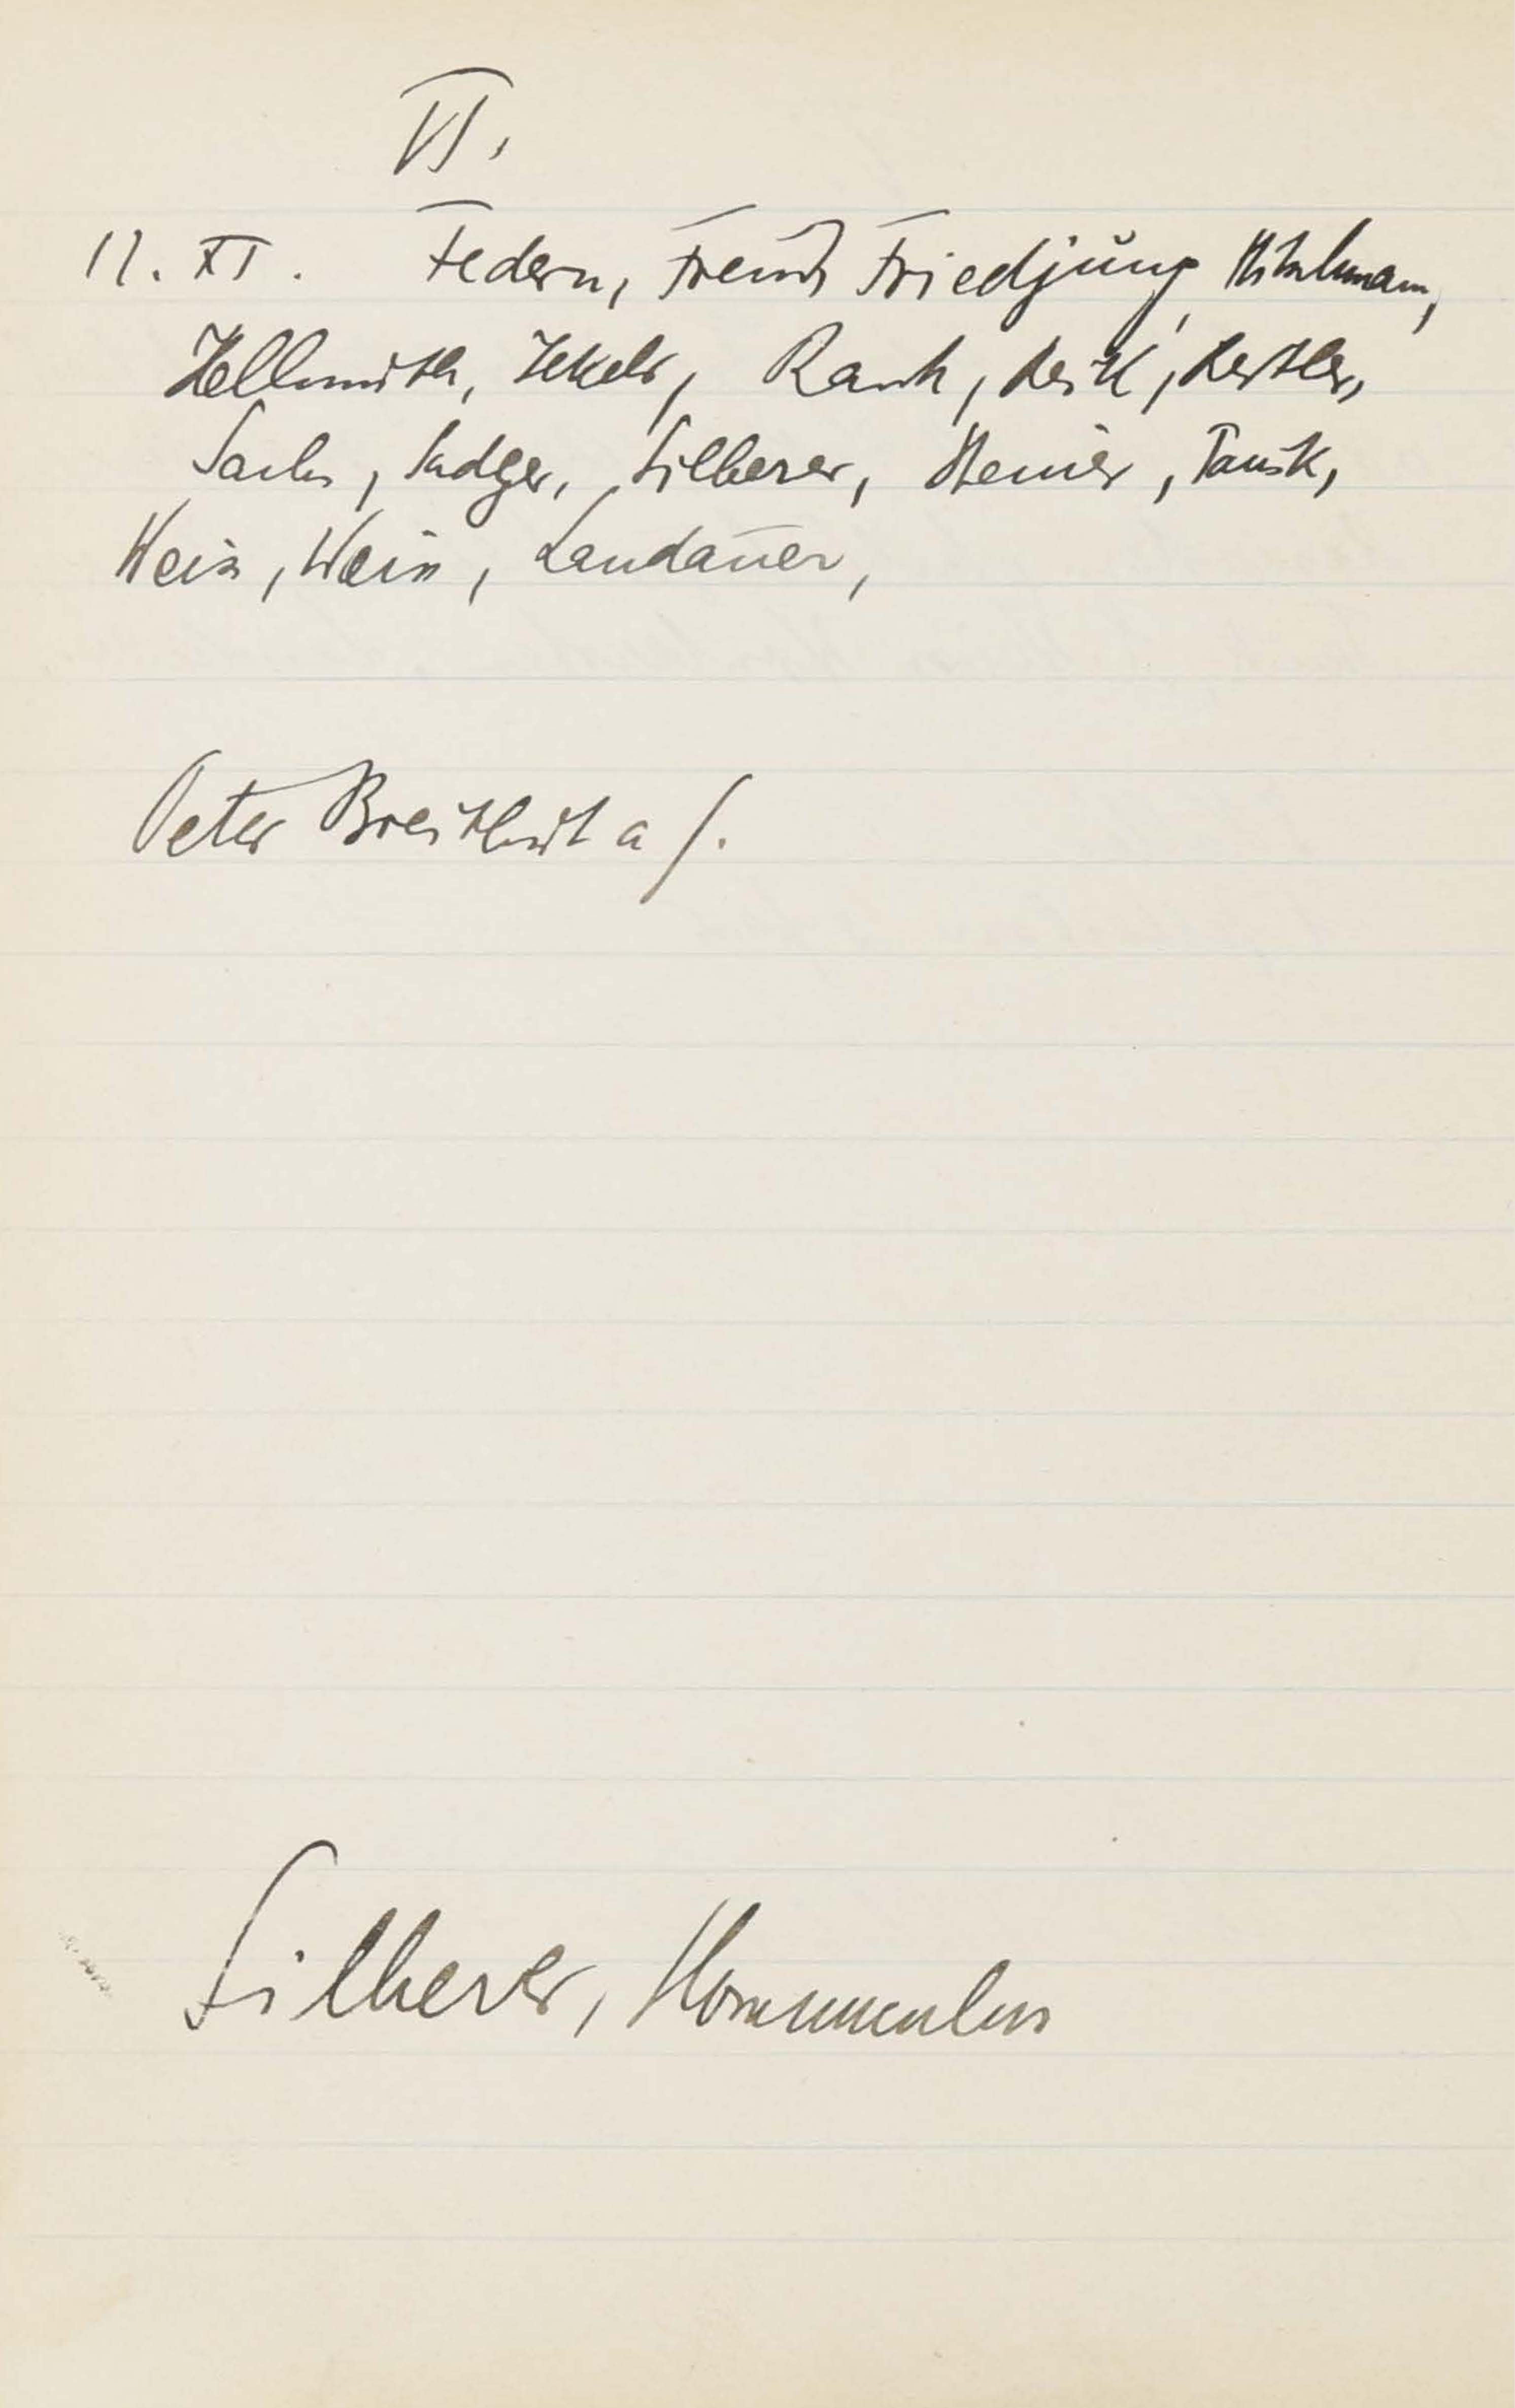 VI.
12. XI. Federn, Freud, Friedjung, Hitschmann,
Hellmuth, Jekels, Rank, Reik, Reitler,
Sachs, Sadger, Silberer, Steiner, Tausk,
Weiss, Weiss, Landauer,
Peter Breithut a
Silberer, Homunculus